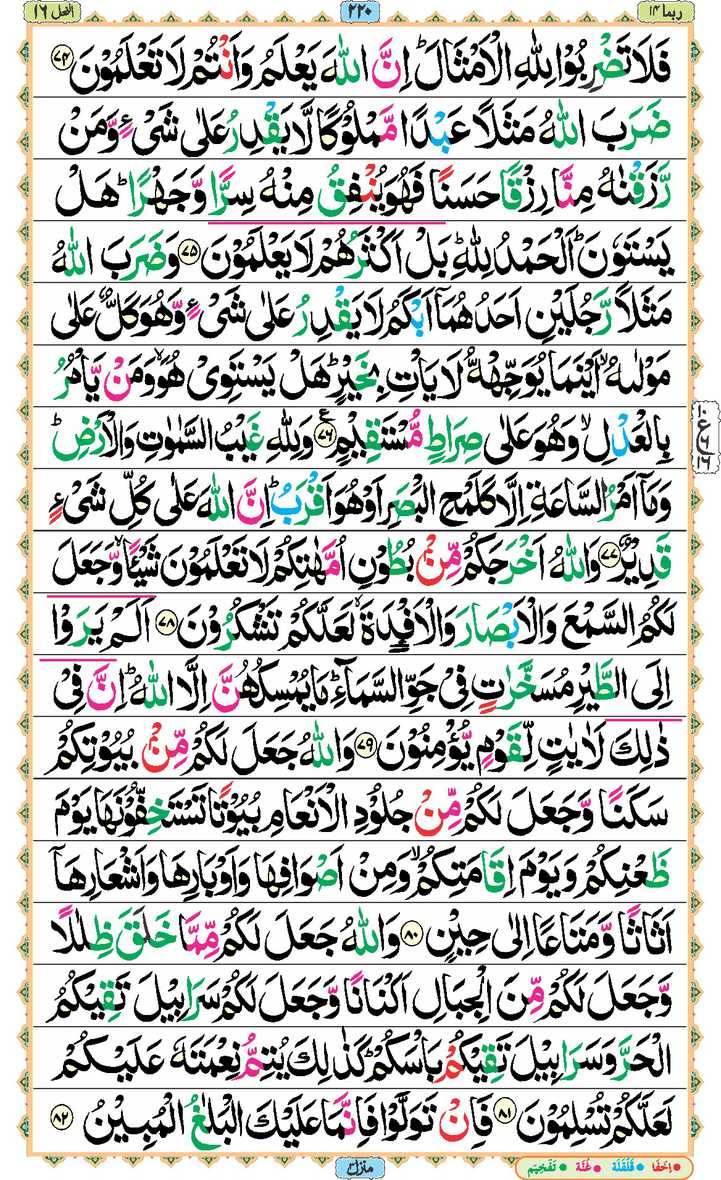 ربما ١٤
٢٢٠
النحل ١٦
فَلَا تَضْرِبُوْا لِلّٰهِ الْاَمْثَالَ ؕ اِنَّ اللّٰهَ يَعْلَمُ وَاَنْتُمْ لَا تَعْلَمُوْنَ ﴿٧٤﴾
ضَرَبَ اللّٰهُ مَثَلًا عَبْدًا مَّمْلُوْكًا لَّا يَقْدِرُ عَلٰى شَىْءٍ وَّمَنْ
رَّزَقْنٰهُ مِنَّا رِزْقًا حَسَنًا فَهُوَ يُنْفِقُ مِنْهُ سِرًّا وَّجَهْرًا ؕ هَلْ
يَسْتَوٗنَ ؕ اَلْحَمْدُ لِلّٰهِ ؕ بَلْ اَكْثَرُهُمْ لَا يَعْلَمُوْنَ ﴿٧٥﴾ وَضَرَبَ اللّٰهُ
مَثَلًا رَّجُلَيْنِ اَحَدُهُمَاۤ اَبْكَمُ لَا يَقْدِرُ عَلٰى شَىْءٍ وَّهُوَ كَلٌّ عَلٰى
مَوْلٰىهُ ۙ اَيْنَمَا يُوَجِّهْهُّ لَا يَاْتِ بِخَيْرٍ ؕ هَلْ يَسْتَوِىْ هُوَ ۙ وَمَنْ يَّاْمُرُ
بِالْعَدْلِ ۙ وَهُوَ عَلٰى صِرَاطٍ مُّسْتَقِيْمٍ ﴿٧٦﴾ ع وَلِلّٰهِ غَيْبُ السَّمٰوٰتِ وَالْاَرْضِ ؕ
وَمَاۤ اَمْرُ السَّاعَةِ اِلَّا كَلَمْحِ الْبَصَرِ اَوْ هُوَ اَقْرَبُ ؕ اِنَّ اللّٰهَ عَلٰى كُلِّ شَىْءٍ
قَدِيْرٌ ﴿٧٧﴾ وَاللّٰهُ اَخْرَجَكُمْ مِّنْۢ بُطُوْنِ اُمَّهٰتِكُمْ لَا تَعْلَمُوْنَ شَيْـًٔا ۙ وَّجَعَلَ
لَكُمُ السَّمْعَ وَالْاَبْصَارَ وَالْاَفْـِٕدَةَ ۙ لَعَلَّكُمْ تَشْكُرُوْنَ ﴿٧٨﴾ اَلَمْ يَرَوْا
اِلَى الطَّيْرِ مُسَخَّرٰتٍ فِىْ جَوِّ السَّمَآءِ ؕ مَا يُمْسِكُهُنَّ اِلَّا اللّٰهُ ؕ اِنَّ فِىْ
ذٰلِكَ لَاٰيٰتٍ لِّقَوْمٍ يُّؤْمِنُوْنَ ﴿٧٩﴾ وَاللّٰهُ جَعَلَ لَكُمْ مِّنْۢ بُيُوْتِكُمْ
سَكَنًا وَّجَعَلَ لَكُمْ مِّنْ جُلُوْدِ الْاَنْعَامِ بُيُوْتًا تَسْتَخِفُّوْنَهَا يَوْمَ
ظَعْنِكُمْ وَيَوْمَ اِقَامَتِكُمْ ۙ وَمِنْ اَصْوَافِهَا وَاَوْبَارِهَا وَاَشْعَارِهَاۤ
اَثَاثًا وَّمَتَاعًا اِلٰى حِيْنٍ ﴿٨٠﴾ وَاللّٰهُ جَعَلَ لَكُمْ مِّمَّا خَلَقَ ظِلٰلًا
وَّجَعَلَ لَكُمْ مِّنَ الْجِبَالِ اَكْنَانًا وَّجَعَلَ لَكُمْ سَرَابِيْلَ تَقِيْكُمُ
الْحَرَّ وَسَرَابِيْلَ تَقِيْكُمْ بَاْسَكُمْ ؕ كَذٰلِكَ يُتِمُّ نِعْمَتَهٗ عَلَيْكُمْ
لَعَلَّكُمْ تُسْلِمُوْنَ ﴿٨١﴾ فَاِنْ تَوَلَّوْا فَاِنَّمَا عَلَيْكَ الْبَلٰغُ الْمُبِيْنُ ﴿٨٢﴾
١٠
ع
٦
١٦
منزل ٣
اِخفَا قَلْقَلَة غُنَّة تَفْخِيْم